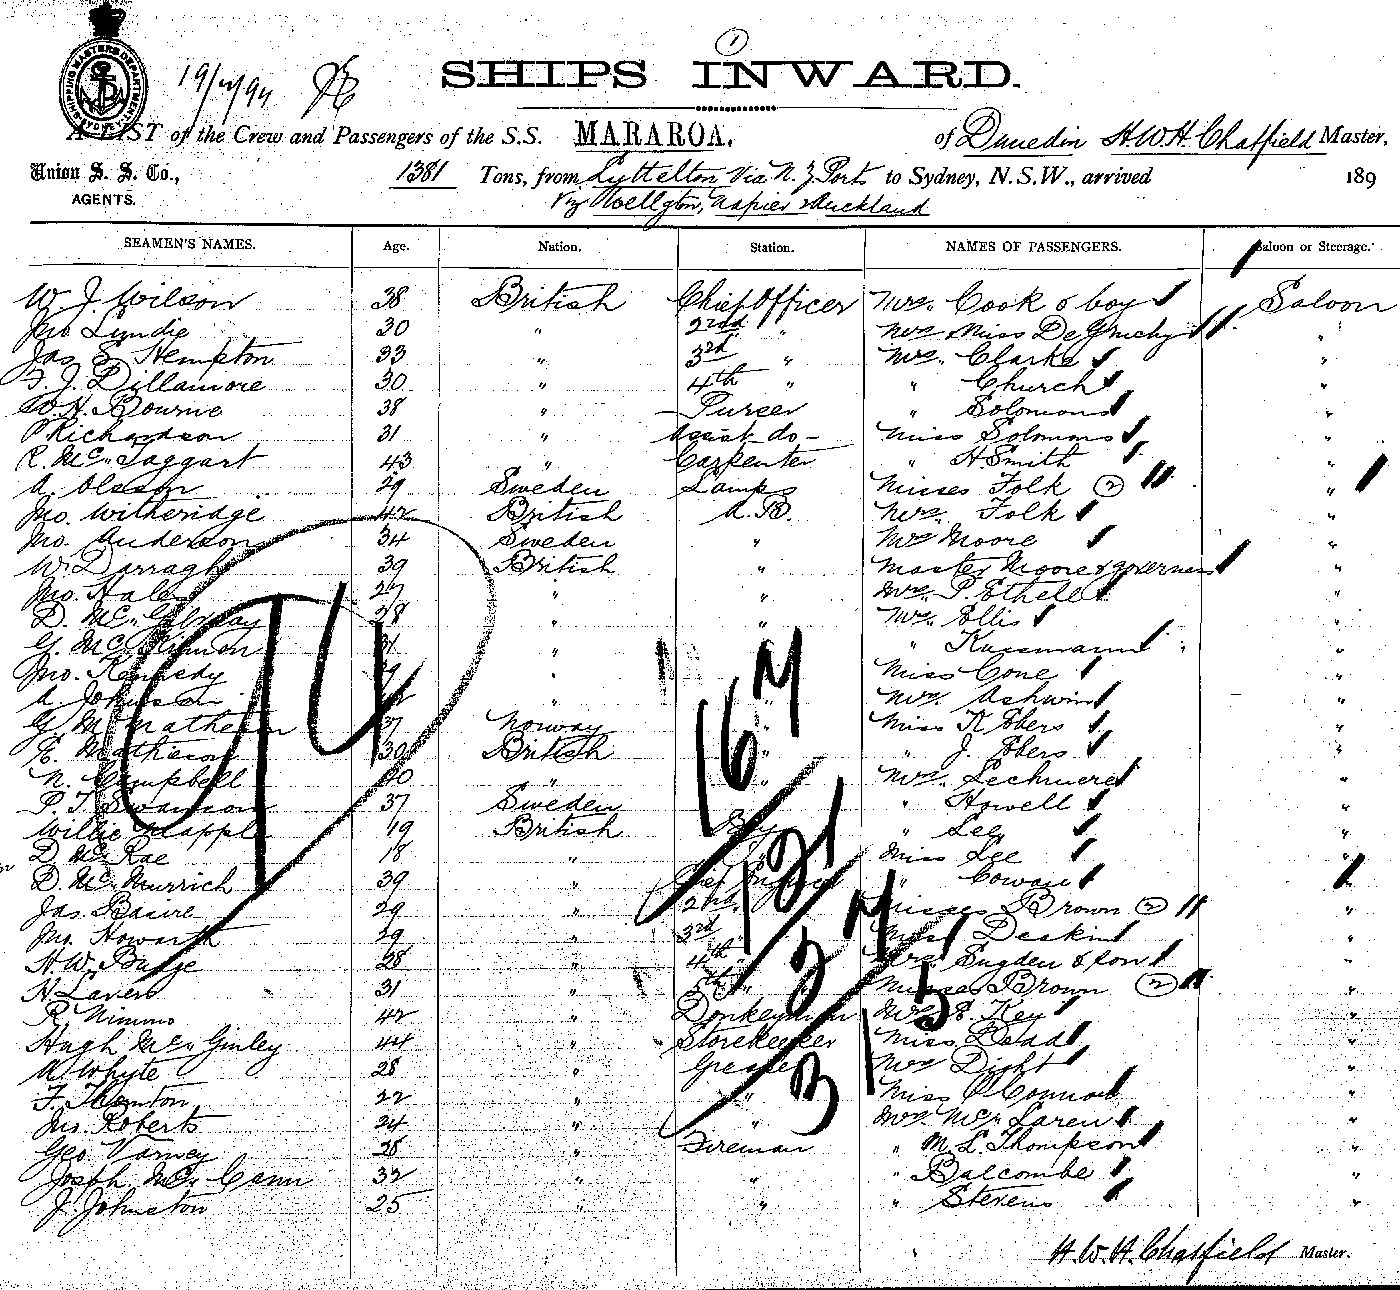 1
SHIPS INWARD.
SHIPPING MASTERS DEPARTMENT SYDNEY
A LIST of the Crew and Passengers of the S.S. MARAROA, of Dunedin H.W.H. Chatfield Master,
Union S. S. Co., AGENTS. 1381 Tons, from Lyttelton Via N.Z. Ports to Sydney, N.S.W., arrived 189
Viz Wellgton, Napier & Auckland
SEAMEN'S NAMES. Age. Nation. Station. NAMES OF PASSENGERS. Saloon or Steerage.
W. J. Wilson 38 British Chief Officer Mrs. Cook & boy Saloon
Jno Lundie 30 " 2nd " Miss De "
Jas S. Hempton 33 " 3rd " Mrs. Clarke "
F. J. Dillamore 30 " 4th " " Church "
W. H. Bourne 38 " Purser " Solomons "
P Richardson 31 " Assist do Miss Solomons "
R. McTaggart 43 " Carpenter " H Smith "
A. Olsson 29 Sweden Lamps Misses Folk 2 "
Jno. Witheridge 42 British A.B. Mrs. Folk "
Jno. Anderson 34 Sweden " Mrs Moore "
W. Darragh 39 British " Master Moore & governess "
Jno. Hales 27 " " Mrs. P. "
D. Mc 28 " " Mrs. Ellis "
G. McKinnon 31 " " " "
Jno. Kennedy 39 " " Miss Cone "
A Johnson " " Mrs. Ashwin "
G. M. Mathesen 37 Norway " Miss K Ebers "
E. Matheson 30 British " " J. Ebers "
N. Campbell " " Mrs. "
P. T. Swanson 37 Sweden " Howell "
Willie 19 British Boy " Lee "
D. McRae 18 " " Miss Lee "
D. McMurrich 39 " Chief Engineer " Cowan "
Jas. 29 " 2nd " Misses Brown 2 "
Jno. Howarth 29 " 3rd " Miss Deakin "
H. W. 28 " 4th " Mrs. Sugden & son "
H. Laven 31 " 5th " Misses Brown 2 "
R. Nimmo 42 " Donkeyman Key "
Hugh McGinley 44 " Storekeeper Miss Dead "
A. Whyte 28 " Greaser Mrs "
F. Thornton 22 " " Miss O'Connor "
Jno. Roberts 24 " " Mrs. McLaren "
Geo. Varney 28 " Fireman " M. L. Thompson "
Joseph McCann 32 " " " Balcombe "
J. Johnston 25 " " " Stevens "
H. W. H. Chatfield Master.